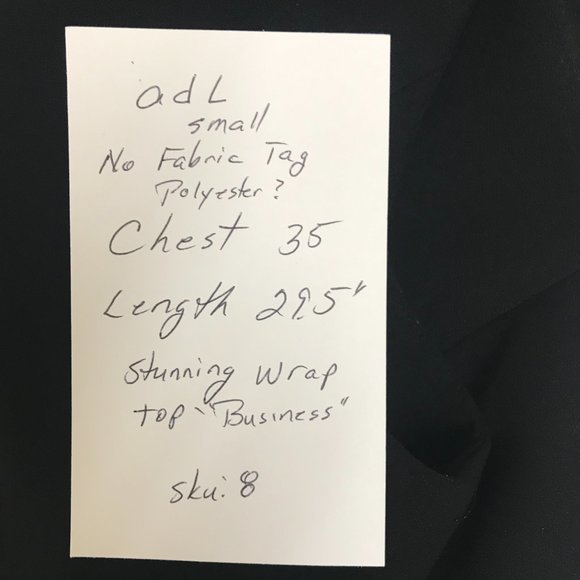 adL
small
No Fabric Tag
Polyester?
Chest 35
Length 29.5"
Stunning Wrap
top - "Business"
sku: 8